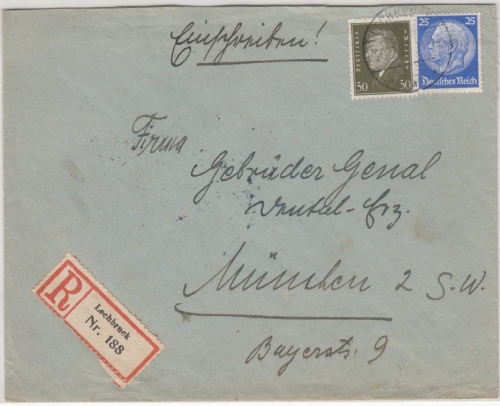 Einschreiben!
Deutsches Reich
50 50
25 25
Deutsches Reich
Firma
Gebrüder Genal
Dental-Erz.
München 2 S.W.
Bayerstr. 9
R
Lechbruck
Nr. 188